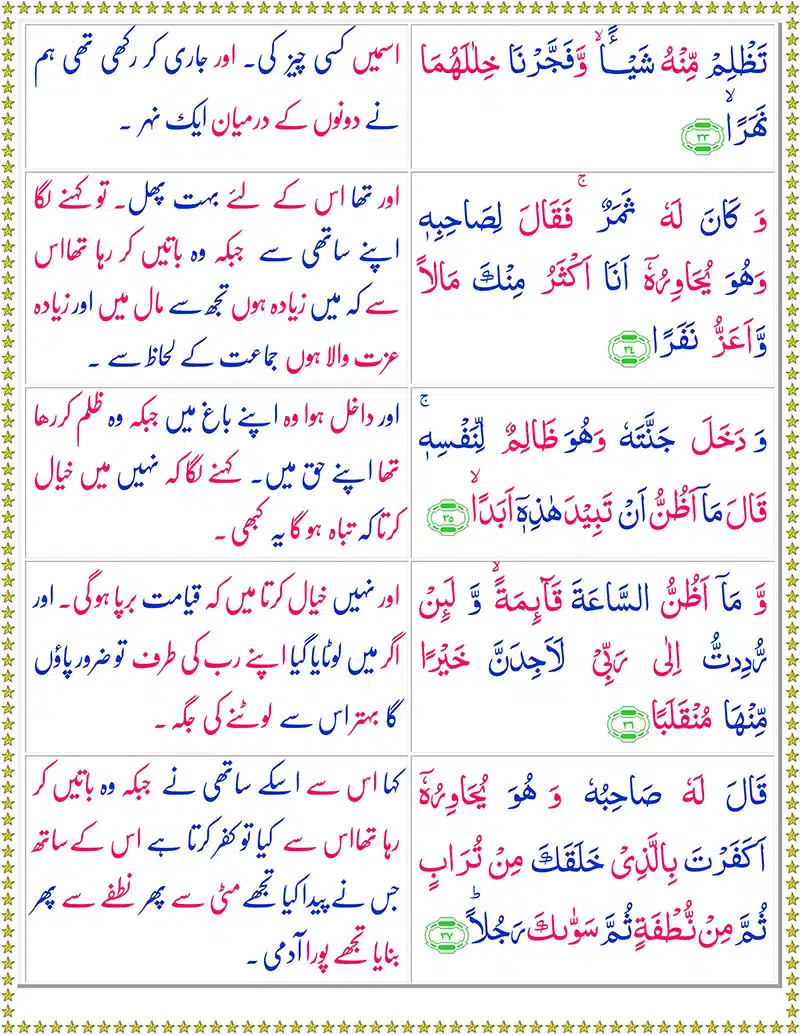 تَظْلِمْ مِّنْهُ شَيْـًٔا ۙ وَّفَجَّرْنَا خِلٰلَهُمَا
نَهَرًا ۙ ﴿٣٣﴾
اسمیں کسی چیز کی۔ اور جاری کر رکھی تھی ہم
نے دونوں کے درمیان ایک نہر ۔
وَ كَانَ لَهٗ ثَمَرٌ ۚ فَقَالَ لِصَاحِبِهٖ
وَهُوَ يُحَاوِرُهٗۤ اَنَا اَكْثَرُ مِنْكَ مَالًا
وَّاَعَزُّ نَفَرًا ﴿٣٤﴾
اور تھا اس کے لئے بہت پھل۔ تو کہنے لگا
اپنے ساتھی سے جبکہ وہ باتیں کر رہا تھااس
سے کہ میں زیادہ ہوں تجھ سے مال میں اور زیادہ
عزت والا ہوں جماعت کے لحاظ سے ۔
وَ دَخَلَ جَنَّتَهٗ وَهُوَ ظَالِمٌ لِّنَفْسِهٖ ۚ
قَالَ مَاۤ اَظُنُّ اَنْ تَبِيْدَ هٰذِهٖۤ اَبَدًا ۙ ﴿٣٥﴾
اور داخل ہوا وہ اپنے باغ میں جبکہ وہ ظلم کررھا
تھا اپنے حق میں۔ کہنے لگا کہ نہیں میں خیال
کرتا کہ تباہ ہو گا یہ کبھی ۔
وَّ مَاۤ اَظُنُّ السَّاعَةَ قَآىِٕمَةً ۙ وَّ لَىِٕنْ
رُّدِدْتُّ اِلٰى رَبِّىْ لَاَجِدَنَّ خَيْرًا
مِّنْهَا مُنْقَلَبًا ﴿٣٦﴾
اور نہیں خیال کرتا میں کہ قیامت برپا ہوگی۔ اور
اگر میں لوٹایا گیا اپنے رب کی طرف تو ضرور پاؤں
گا بہتر اس سے لوٹنے کی جگہ ۔
قَالَ لَهٗ صَاحِبُهٗ وَ هُوَ يُحَاوِرُهٗۤ
اَكَفَرْتَ بِالَّذِىْ خَلَقَكَ مِنْ تُرَابٍ
ثُمَّ مِنْ نُّطْفَةٍ ثُمَّ سَوّٰىكَ رَجُلًا ؕ ﴿٣٧﴾
کہا اس سے اسکے ساتھی نے جبکہ وہ باتیں کر
رہا تھااس سے کیا تو کفر کرتا ہے اس کے ساتھ
جس نے پیدا کیا تجھے مٹی سے پھر نطفے سے پھر
بنایا تجھے پورا آدمی ۔